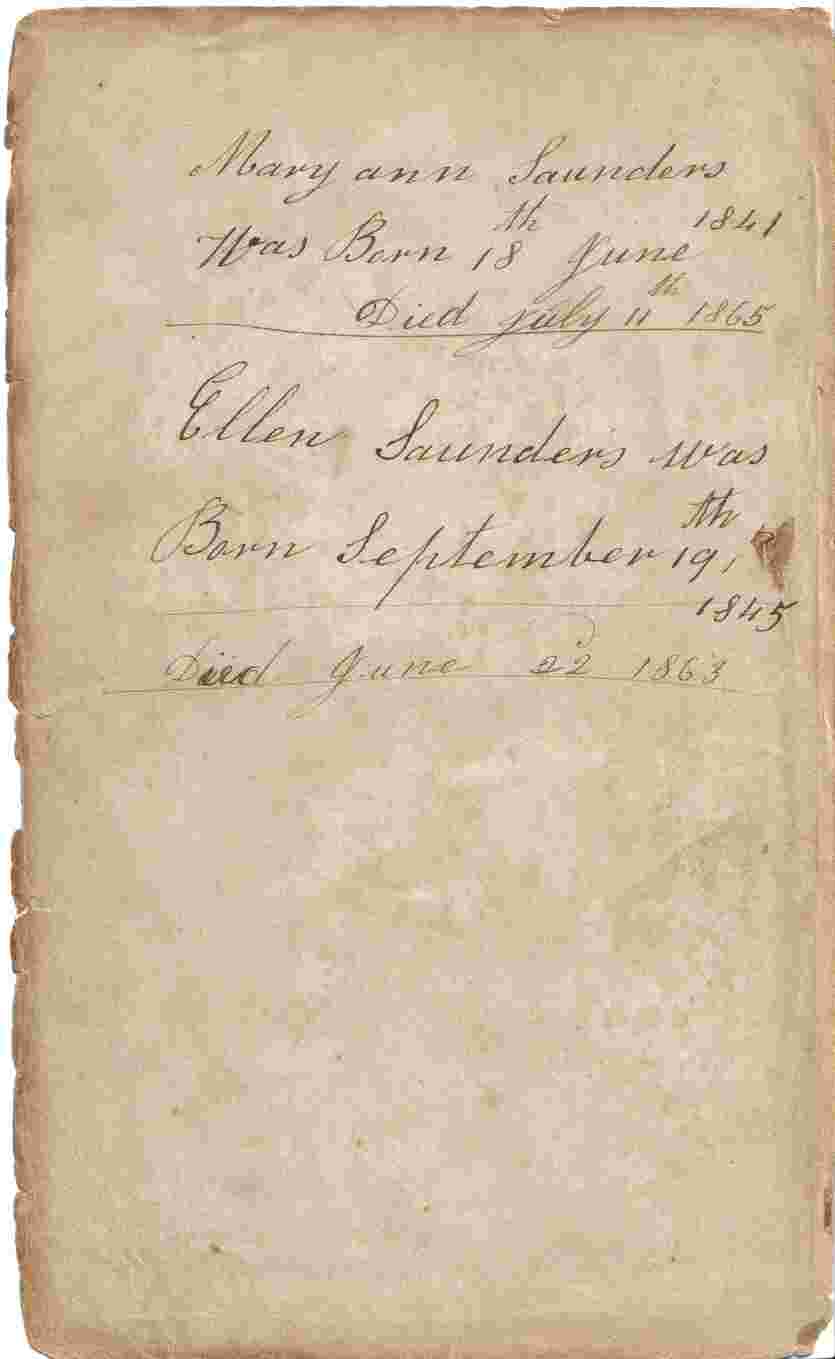 Mary ann Saunders
Was Born 18th June 1841
Died July 11th 1865
Ellen Saunders was
Born September 19th,
1845
Died June 22 1863